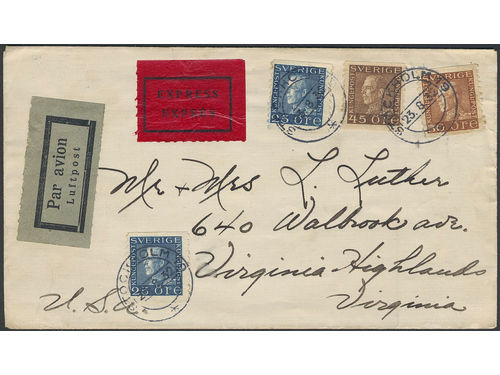 EXPRESS
EXPRÈS
Par avion
Luftpost
SVERIGE
25 ÖRE
SVERIGE
45 ÖRE
SVERIGE
50 ÖRE
STOCKHOLM 19
23. 8.
Mr. + Mrs L. Luther
640 Walbrook ave.
Virginia Highlands
Virginia
U.S.A
SVERIGE
25 ÖRE
STOCKHOLM 19